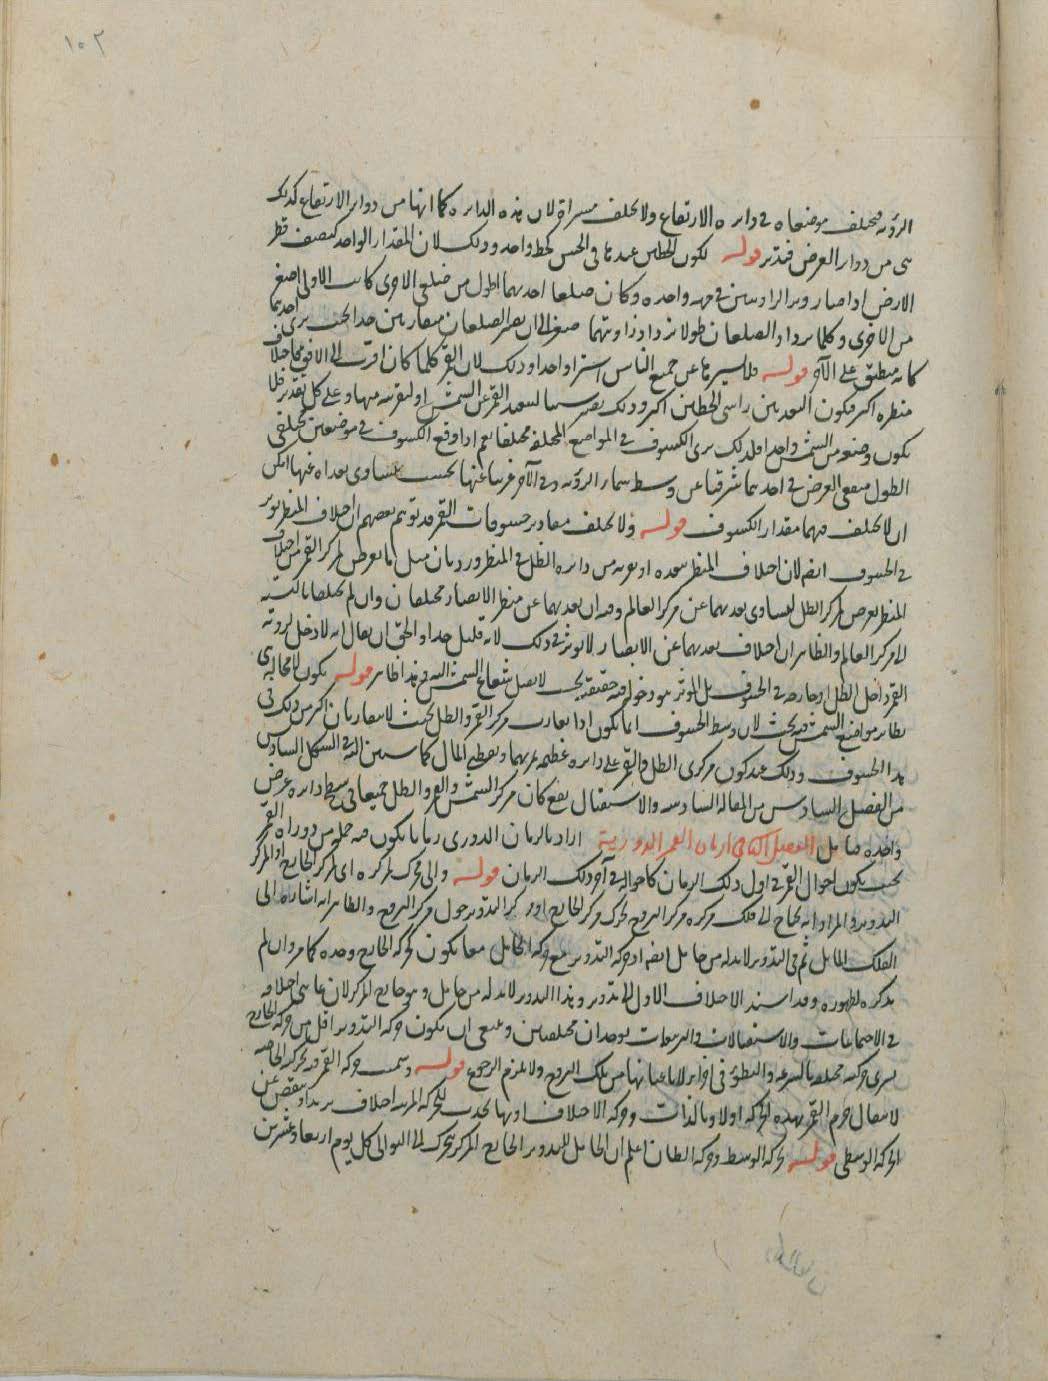 ١٠٢
الرؤية مختلف موضعاه في دايرة الارتفاع ولا يختلف مسيراة لان هذه الدايرة كما انها من دواير الارتفاع كذلك
هي من دواير العرض فتدبر قوله لكون الخطين عندنا في الحس كخط واحد وذلك لان المقدار الواحد كنصف قطر
الارض اذا صار وتر الزاويتين في جهة واحدة وكان ضلعا احديهما اطول من ضلعي الاخرى كانت الاولى اصغر
من الاخرى وكلما يزداد الضلعان طولا تزداد زاويتهما صغرا الى ان يصير الضلعان متقاربين جدا بحيث يرى احدهما
كانه منطبق على الآخر قوله فلا يسير بها عن جميع الناس استرا واحدا وذلك لان القمر كلما كان اقرب الى الافق كان اختلاف
منظره اكثر فيكون البعد بين راسي الخطين اكثر وذلك يصير سببا لبعد القمر عن الشمس او لقربه منها وعلى كل تقدير فلا
يكون وضعه من الشمس واحدا فلذلك يرى الكسوف في المواضع المختلفة مختلفا نعم اذا وقع الكسوف في موضعين مختلفي
الطول متفقي العرض في احدهما شرقيا عن وسط سماء الرؤية وفي الآخر غربيا عنها بحسب يتساوى بعداه عنها امكن
ان لا يختلف فيهما مقدار الكسوف قوله ولا يختلف مقادير خسوفات القمر قد توهم بعضهم ان اختلاف المنظر يؤثر
في الخسوف ايضا لان اختلاف المنظر يبعده او يقربه من دايرة الظل في المنظر ورد بان مثل ما يعرض لمركز القمر من اختلاف
المنظر يعرض لمركز الظل لتساوي بعدهما عن مركز العالم وفيه ان بعدهما عن منظر الابصار مختلفان وان لم يختلفا بالنسبة
الى مركز العالم والظاهر ان اختلاف بعدهما عن الابصار لا يؤثر في ذلك لانه قليل جدا والحق ان يقال انه لا دخل لرؤية
القمر داخل الظل او خارجه في الخسوف بل المؤثر هو دخوله فيه حقيقة بحيث لا يصل شعاع الشمس اليه وهذا ظاهر قوله يكون لا محالة في
نظاير مواضع الشمس فيه بحث لان وسط الخسوف انما يكون اذا تقارب مركز القمر والظل بحيث لا يتقاربان اكثر من ذلك في
هذا الخسوف وذلك عند كون مركزي الظل والقمر على دايرة عظيمة تمر بهما وبقطبي المايل كما سيتبين اليه في الشكل السادس
من الفصل السادس من المقالة السادسة والاستقبال يقع كان مركز الشمس والقمر والظل جميعا في سطح دايرة عرض
واحدة فتامل الفصل الثاني في ازمان القمر الدورية اراد بالزمان الدوري زمانا يكون فيه جملة من دورات القمر
بحيث يكون احوال القمر في اول ذلك الزمان كاحواله في آخر ذلك الزمان قوله والى محرك لمركزه اي لمركز الخارج او لمركز
التدوير والمراد انه يحتاج الى فلك مركزه مركز البروج يحرك مركز الخارج او مركز التدوير حول مركز البروج والظاهر انه اشارة الى
الفلك المايل ثم في التدوير لابد له من حامل ايضا او حركة التدوير مع حركة الحامل معا يكون كحركة الخارج وحده كما مر وان لم
يذكره لظهوره وقد اسند الاختلاف الاول الى تدوير وهذا التدوير لابد له من حامل وهو خارج المركز لان غاية اختلافه
في الاجتماعات والاستقبالات وفي التربيعات يوجدان مختلفين وينبغي ان يكون حركة التدوير اقل من حركة الخارج
يسرى حركته مختلفة بالسرعة والبطؤ في اجزاء لا باعيانها من فلك البروج ولا يلزم الرجوع قوله وسميت حركة القمر فيه بحركة الخاصة
لانتقال جرم القمر بهذه الحركة اولا وبالذات وحركة الاختلاف اذ بها يحدث للحركة المرئية اختلاف يزيد او ينقص عن
الحركة الوسطى قوله بحركة الوسط وحركة الطان اعلم ان الحامل للتدوير الخارج المركز يتحرك الى التوالي كل يوم اربعا وعشرين